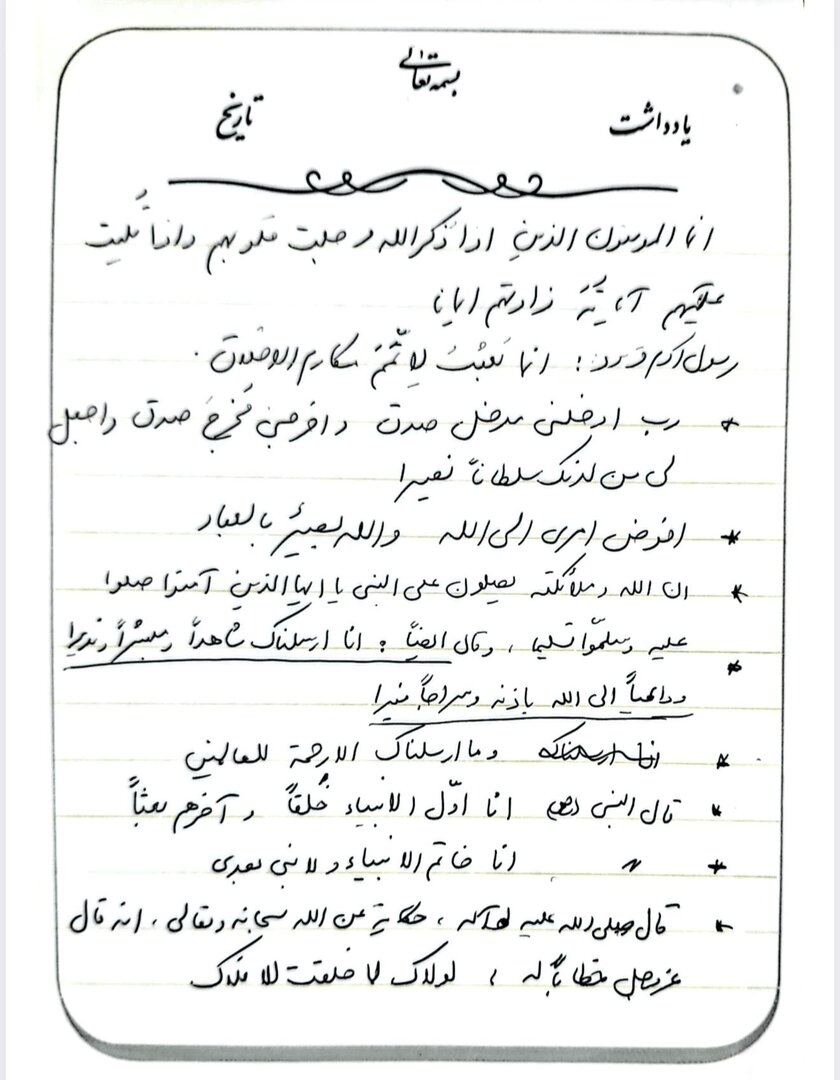 بسمه تعالی
یادداشت
تاریخ
انما المومنون الذین اذا ذُکر الله وجلت قلوبهم واذا تُلیت
علیهم آیاتُهُ زادتهم ایمانا
رسول اکرم فرمود: انما بُعِثتُ لِاُتَمِّمَ مکارم الاخلاق.
* رب ادخلنی مدخل صدق و اخرجنی مُخرجَ صدق واجعل
لی من لدنک سلطاناً نصیرا
* افوض امری الی الله والله بصیرٌ بالعباد
* ان الله وملائکته یصلون علی النبی یا ایها الذین آمنوا صلوا
علیه وسلّموا تسلیما، وقال ایضاً: انا ارسلناک شاهداً ومبشراً ونذیرا
* وداعیاً الی الله باذنه وسراجاً منیرا
* انا ارسلناک وما ارسلناک الا رحمة للعالمین
* قال النبی (ص) انا اوّل الانبیاء خُلقاً و آخرهم بعثاً
* 〃 انا خاتم الانبیاء و لا نبی بعدی
* قال صلی الله علیه وآله، حکایةً عن الله سبحانه وتعالی، انه قال
عزوجل خطاباً له، لولاک لما خلقت الافلاک